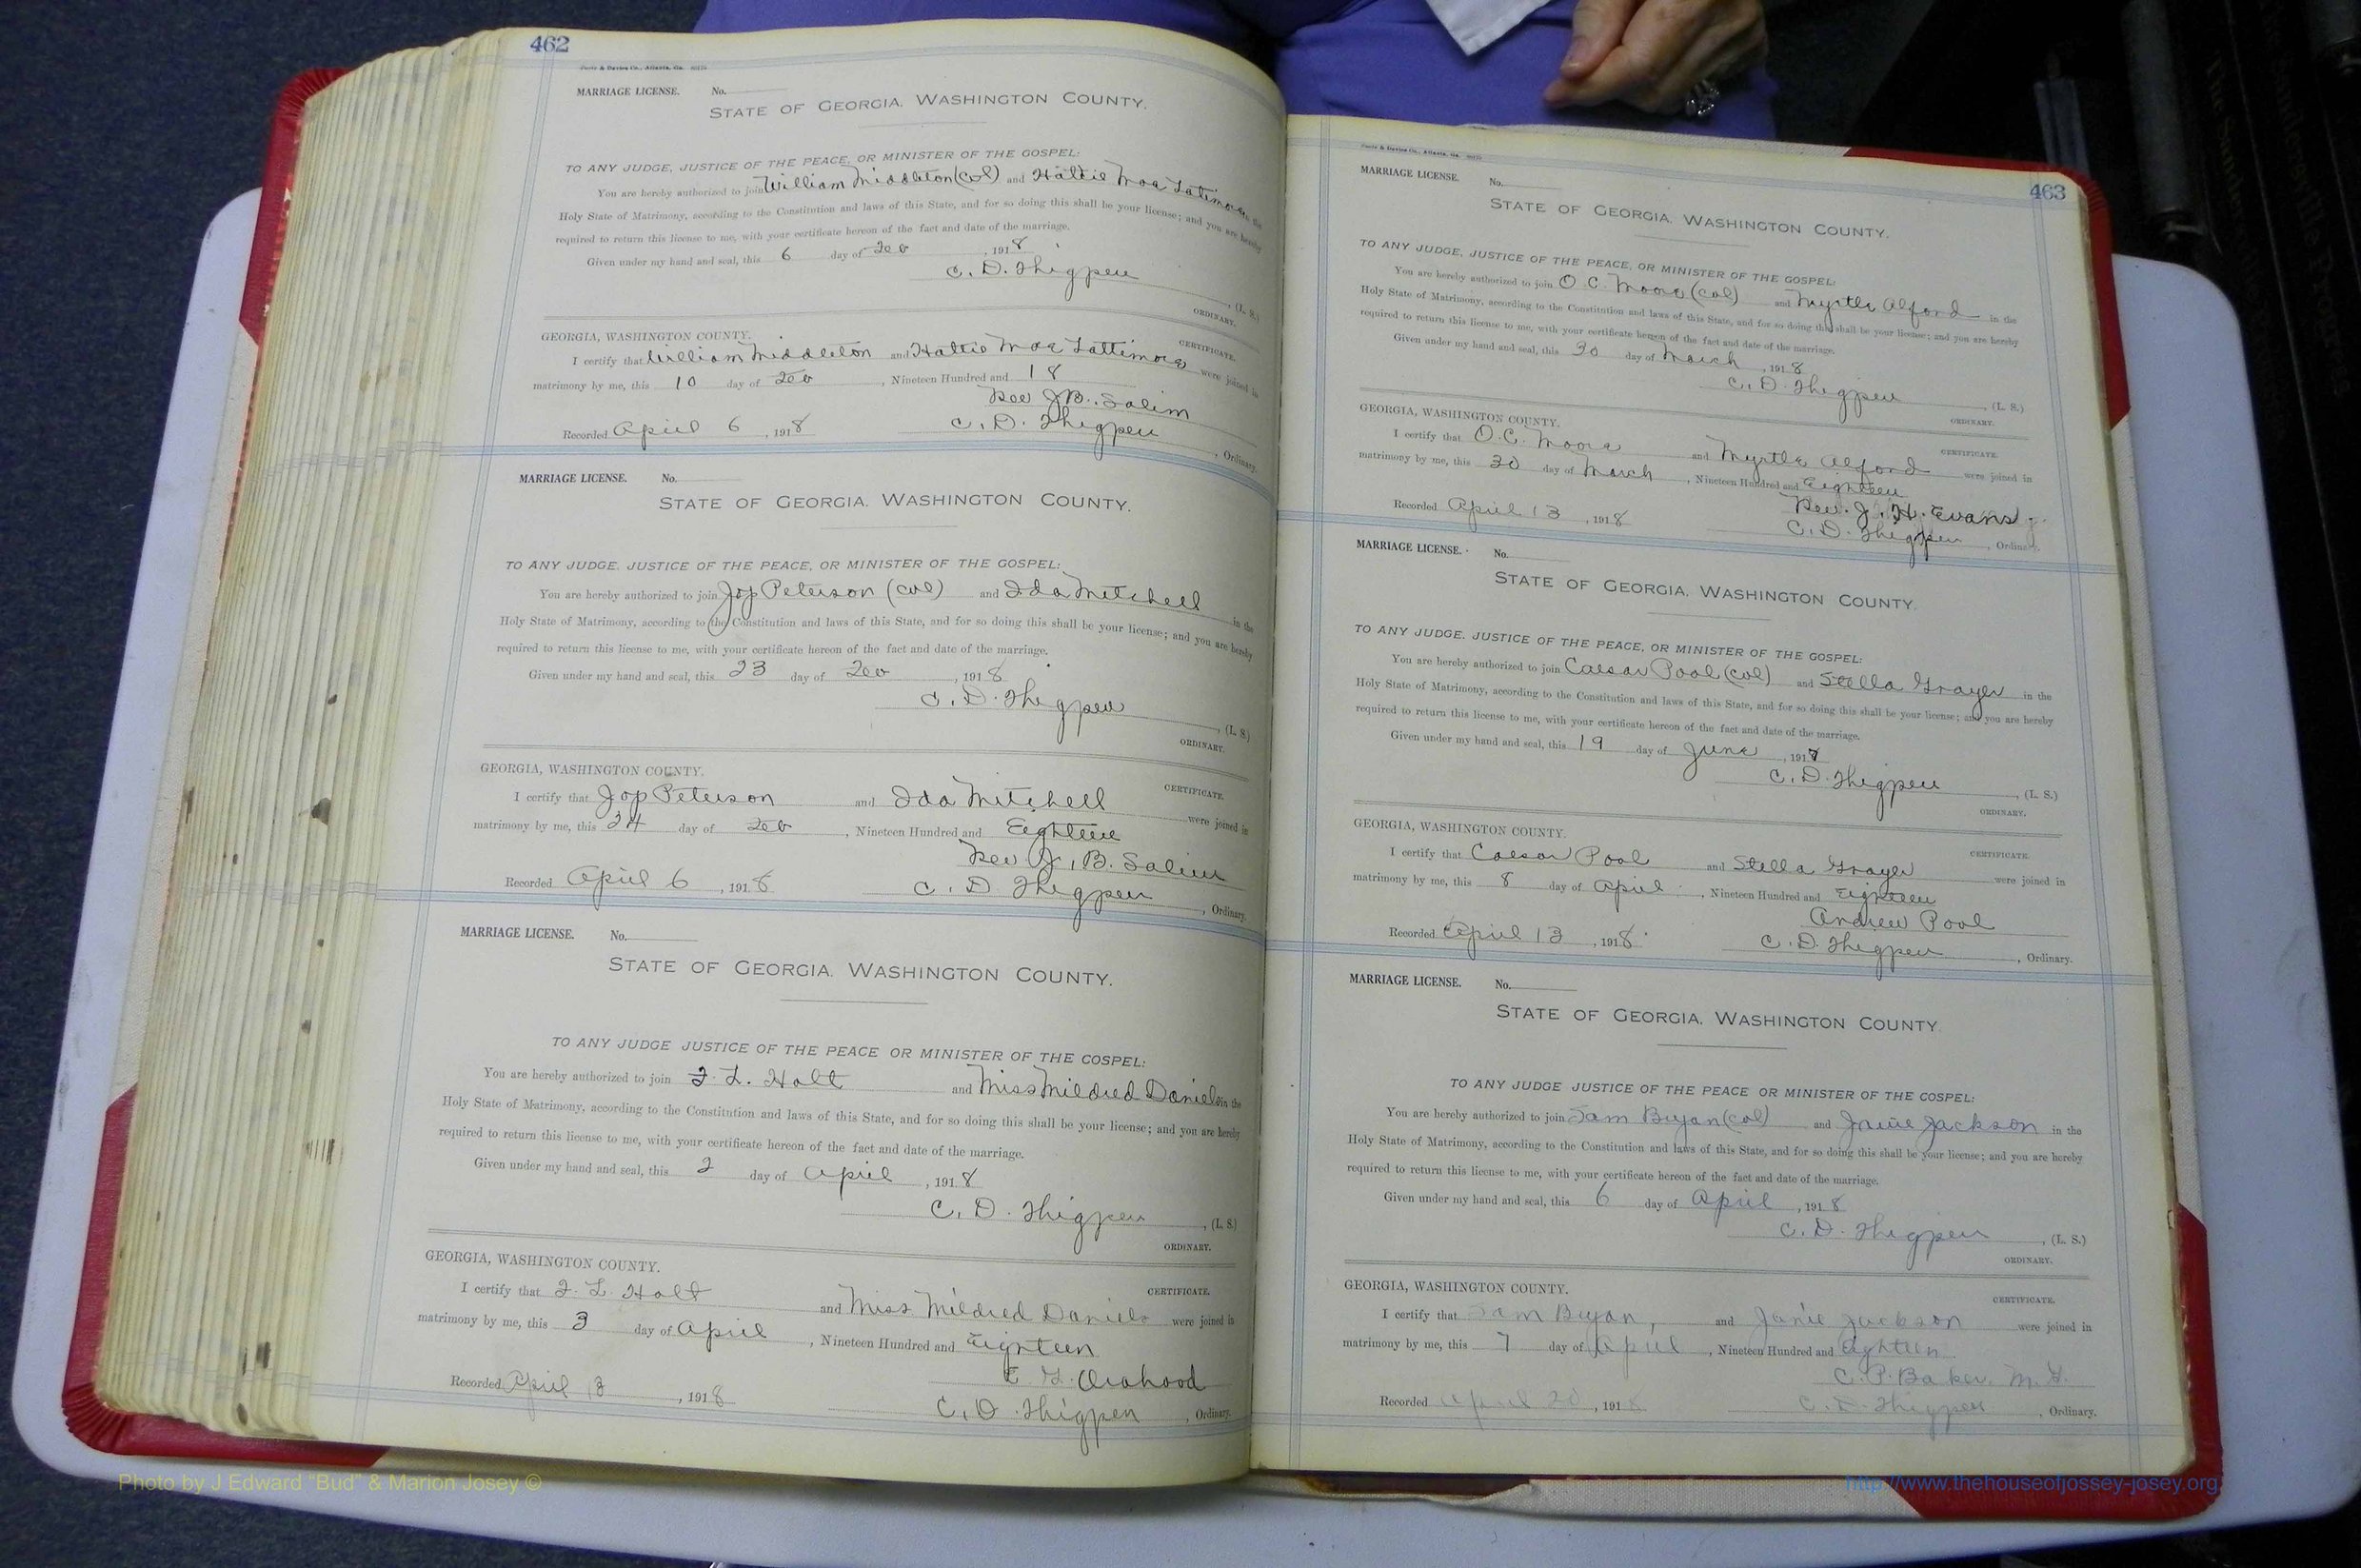 462
MARRIAGE LICENSE. No.
STATE OF GEORGIA, WASHINGTON COUNTY.
TO ANY JUDGE, JUSTICE OF THE PEACE, OR MINISTER OF THE GOSPEL:
You are hereby authorized to join William Middleton (col) and Hattie Mae Latimore in the
Holy State of Matrimony, according to the Constitution and laws of this State, and for so doing this shall be your license; and you are hereby
required to return this license to me, with your certificate hereon of the fact and date of the marriage.
Given under my hand and seal, this 6 day of Feb, 1918
C. D. Thigpen, (L. S.)
ORDINARY.
GEORGIA, WASHINGTON COUNTY. CERTIFICATE.
I certify that William Middleton and Hattie Mae Lattimore were joined in
matrimony by me, this 10 day of Feb, Nineteen Hundred and 18
Rev J.B. Salim
Recorded April 6, 1918 C. D. Thigpen, Ordinary.
MARRIAGE LICENSE. No.
STATE OF GEORGIA, WASHINGTON COUNTY.
TO ANY JUDGE, JUSTICE OF THE PEACE, OR MINISTER OF THE GOSPEL:
You are hereby authorized to join Jop Peterson (col) and Ida Mitchell in the
Holy State of Matrimony, according to the Constitution and laws of this State, and for so doing this shall be your license; and you are hereby
required to return this license to me, with your certificate hereon of the fact and date of the marriage.
Given under my hand and seal, this 23 day of Feb, 1918
C. D. Thigpen, (L. S.)
ORDINARY.
GEORGIA, WASHINGTON COUNTY. CERTIFICATE.
I certify that Jop Peterson and Ida Mitchell were joined in
matrimony by me, this 24 day of Feb, Nineteen Hundred and Eighteen
Rev. J. B. Salim
Recorded April 6, 1918 C. D. Thigpen, Ordinary.
MARRIAGE LICENSE. No.
STATE OF GEORGIA, WASHINGTON COUNTY.
TO ANY JUDGE JUSTICE OF THE PEACE OR MINISTER OF THE GOSPEL:
You are hereby authorized to join F. L. Holt and Miss Mildred Daniels in the
Holy State of Matrimony, according to the Constitution and laws of this State, and for so doing this shall be your license; and you are hereby
required to return this license to me, with your certificate hereon of the fact and date of the marriage.
Given under my hand and seal, this 2 day of April, 1918
C. D. Thigpen, (L. S.)
ORDINARY.
GEORGIA, WASHINGTON COUNTY. CERTIFICATE.
I certify that F. L. Holt and Miss Mildred Daniels were joined in
matrimony by me, this 3 day of April, Nineteen Hundred and Eighteen
Recorded April 13, 1918 C. D. Thigpen, Ordinary.
463
MARRIAGE LICENSE. No.
STATE OF GEORGIA, WASHINGTON COUNTY.
TO ANY JUDGE, JUSTICE OF THE PEACE, OR MINISTER OF THE GOSPEL:
You are hereby authorized to join O. C. Moore (col) and Myrtle Alford in the
Holy State of Matrimony, according to the Constitution and laws of this State, and for so doing this shall be your license; and you are hereby
required to return this license to me, with your certificate hereon of the fact and date of the marriage.
Given under my hand and seal, this 30 day of March, 1918
C. D. Thigpen, (L. S.)
ORDINARY.
GEORGIA, WASHINGTON COUNTY. CERTIFICATE.
I certify that O. C. Moore and Myrtle Alford were joined in
matrimony by me, this 30 day of March, Nineteen Hundred and Eighteen
Rev. J. H. Evans
Recorded April 13, 1918 C. D. Thigpen, Ordinary.
MARRIAGE LICENSE. No.
STATE OF GEORGIA, WASHINGTON COUNTY.
TO ANY JUDGE, JUSTICE OF THE PEACE, OR MINISTER OF THE GOSPEL:
You are hereby authorized to join Caesar Pool (col) and Stella Grayer in the
Holy State of Matrimony, according to the Constitution and laws of this State, and for so doing this shall be your license; and you are hereby
required to return this license to me, with your certificate hereon of the fact and date of the marriage.
Given under my hand and seal, this 19 day of June, 1917
C. D. Thigpen, (L. S.)
ORDINARY.
GEORGIA, WASHINGTON COUNTY. CERTIFICATE.
I certify that Caesar Pool and Stella Grayer were joined in
matrimony by me, this 8 day of April, Nineteen Hundred and Eighteen
Andrew Pool
Recorded April 13, 1918 C. D. Thigpen, Ordinary.
MARRIAGE LICENSE. No.
STATE OF GEORGIA, WASHINGTON COUNTY.
TO ANY JUDGE JUSTICE OF THE PEACE OR MINISTER OF THE GOSPEL:
You are hereby authorized to join Sam Bryan (col) and Janie Jackson in the
Holy State of Matrimony, according to the Constitution and laws of this State, and for so doing this shall be your license; and you are hereby
required to return this license to me, with your certificate hereon of the fact and date of the marriage.
Given under my hand and seal, this 6 day of April, 1918
C. D. Thigpen, (L. S.)
ORDINARY.
GEORGIA, WASHINGTON COUNTY. CERTIFICATE.
I certify that Sam Bryan, and Janie Jackson were joined in
matrimony by me, this 7 day of April, Nineteen Hundred and Eighteen
C. P. Baker. M. G.
Recorded April 20, 1918 C. D. Thigpen, Ordinary.
Photo by J Edward "Bud" & Marion Josey ©
http://www.thehouseofjossey-josey.org